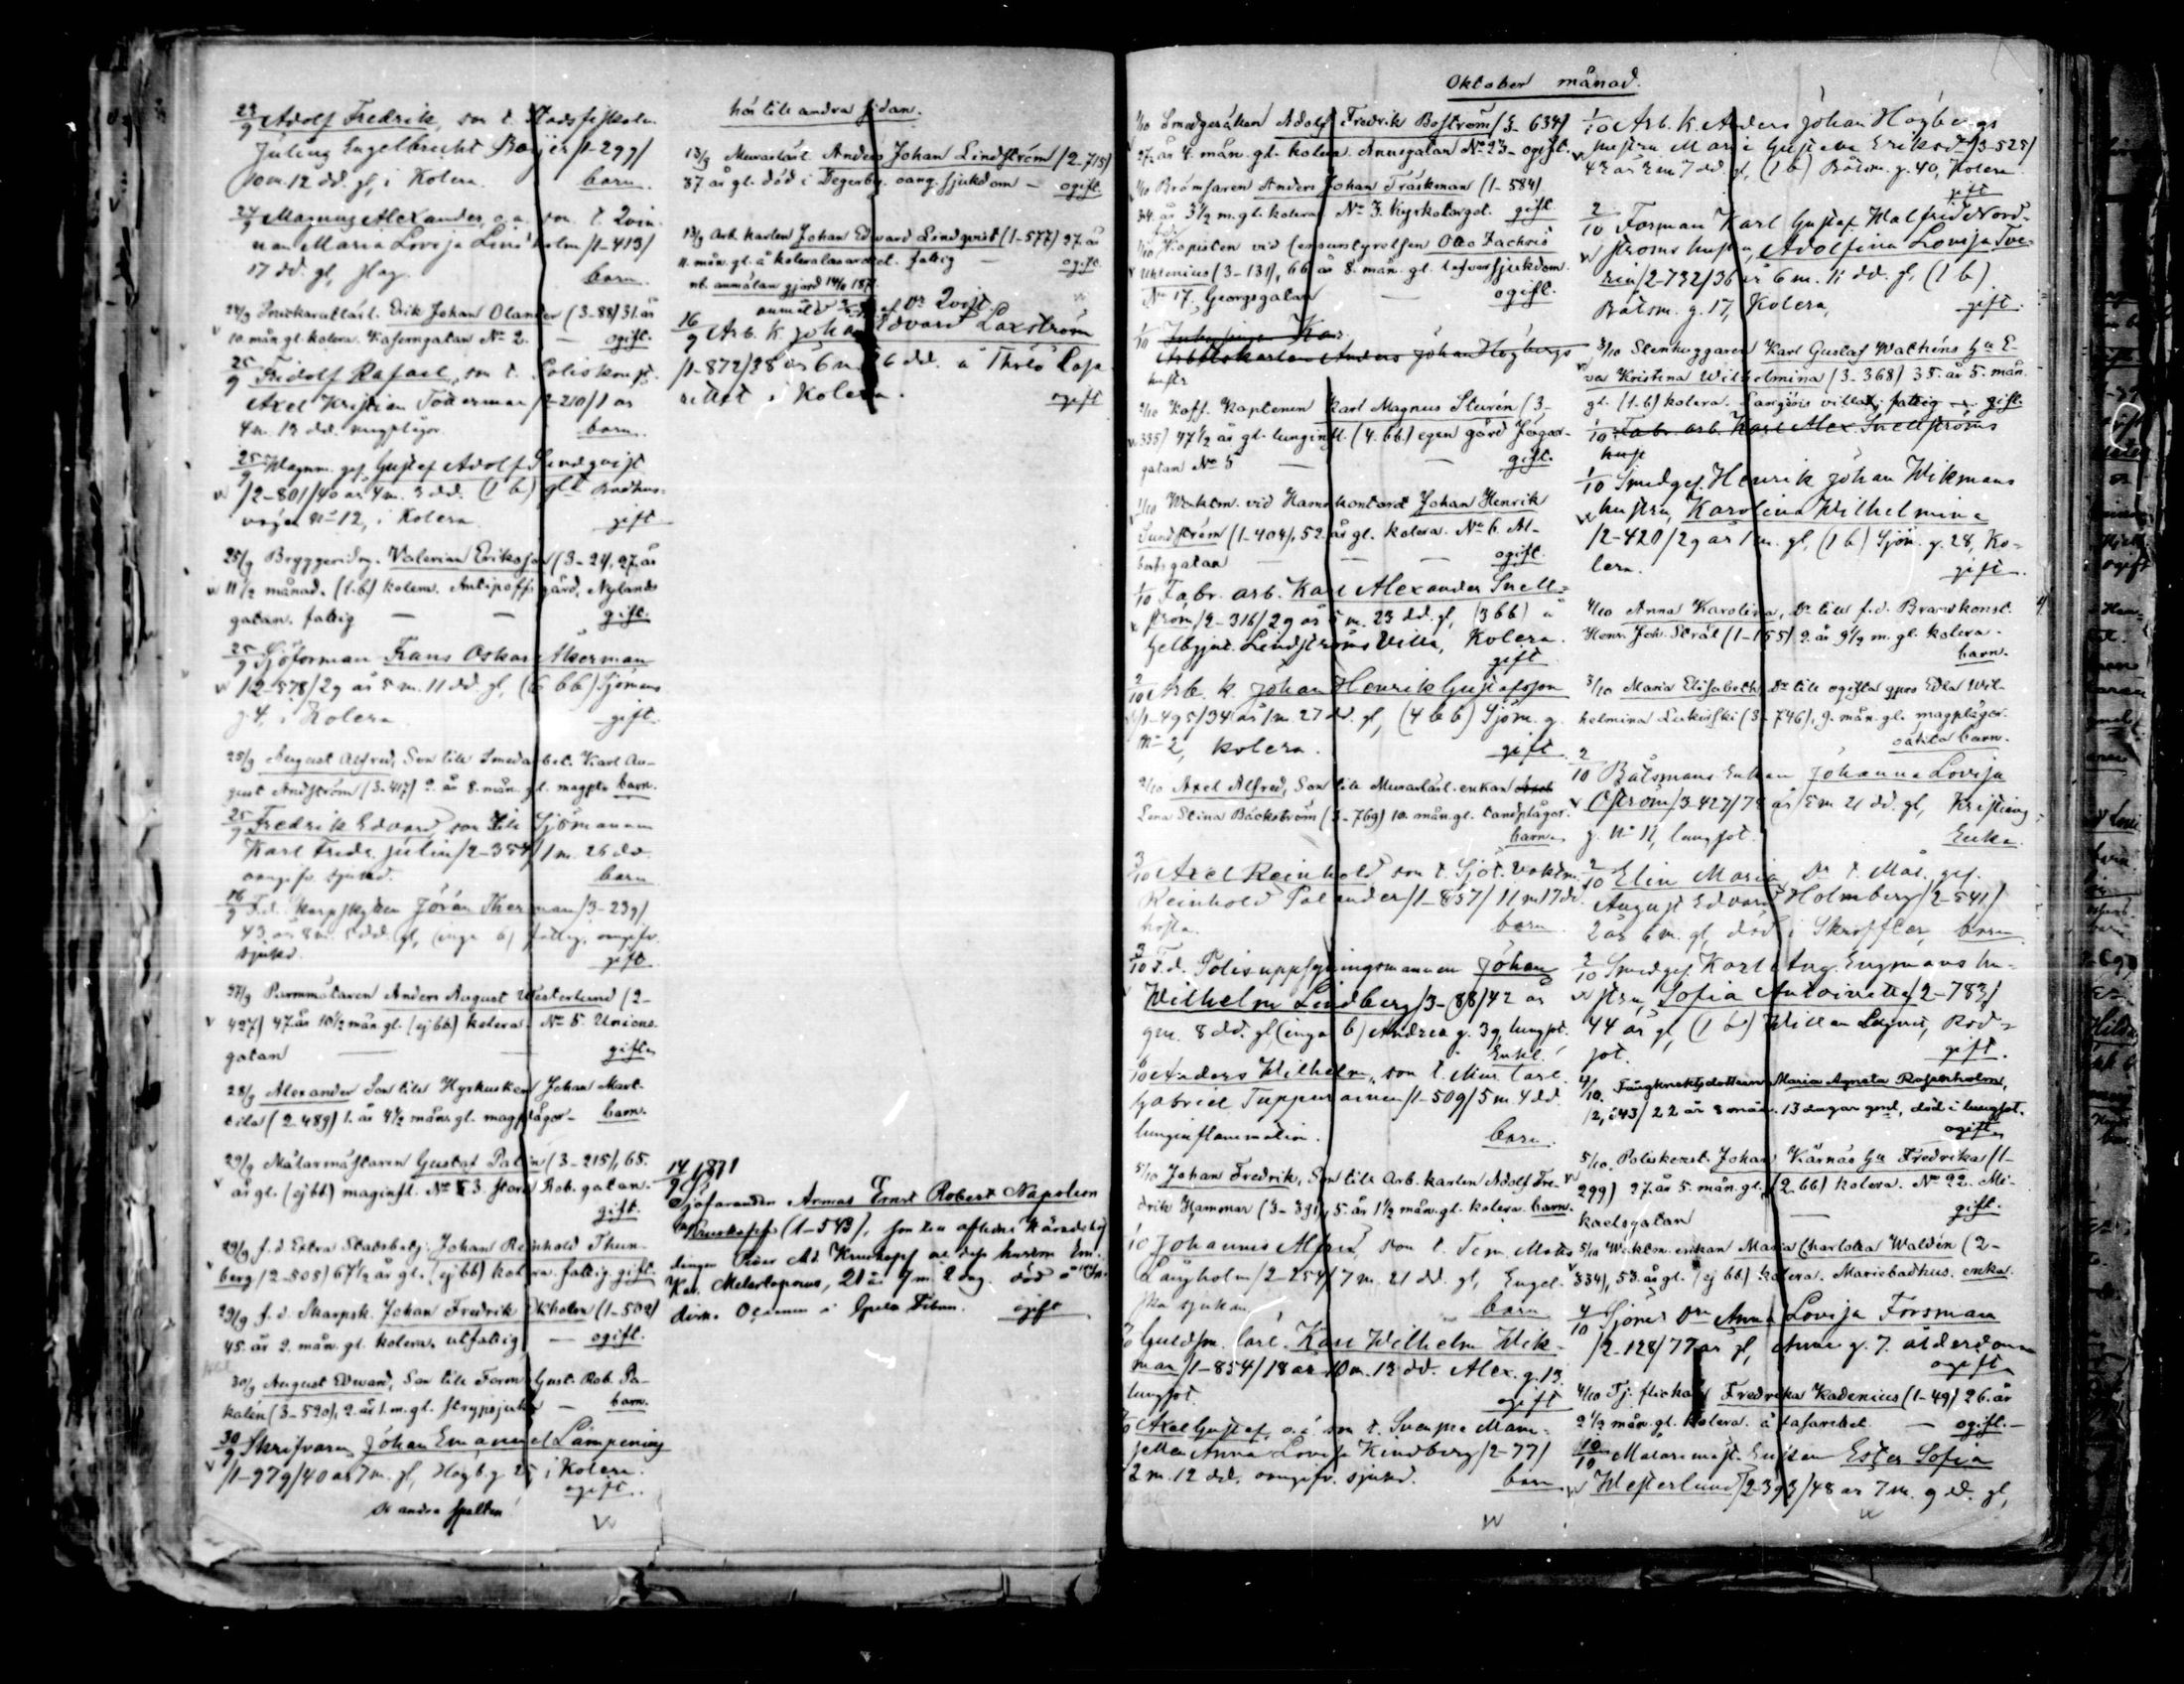 23/9 Adolf Fredrik, son t. Stadsfiskalen
Julius Engelbrecht Borjer /1-299/
10 m. 12 dd. gl, i Kolera. barn.
24/9 Magnus Alexander, o.ä. son t. Qvin-
nan Maria Lovisa Lindholm /1-413/
17 dd. gl, slag. barn.
24/9 Snickarelärl. Erik Johan Olander (3-88) 31. år
10. mån. gl. kolera. Kaserngatan No 2. — ogift.
25/9 Fridolf Rafael, son t. Poliskonst.
Axel Kristian Totterman /2-210/ 1 år
4 m. 13 dd. magplågor. barn.
25/9 Vagnm. ges. Gustaf Adolf Lindqvist
/2-801/ 40 år 4 m. 3 dd. (1 b) gl. Badhus-
vägen No 12, i Kolera. gift
25/9 Bryggeridrg. Valerian Eriksson (3-24), 27. år
11 1/2 månad. (1-b) kolera. Antipoffs gård, Nylands
gatan. fattig — — gift.
25/9 Sjöforman Frans Oskar Åkerman
/2-578/ 29 år 5 m. 11 dd. gl, (6 bb) Sjömans
g 4, i Kolera. gift.
25/9 August Alfred, Son till Smedarbet. Karl Au-
gust Andström (3-417) 2. år 8. mån. gl. magpl. barn.
25/9 Fredrik Edvard, son till Sjömannen
Karl Fredr. Julin /2-354/ 1 m. 26 dd.
oangifv. sjukd. barn
16/9 F.d. Skarpskytten Jöran Therman /3-239/
43 år 8 m. 5 dd. gl, (inga b) fattig, oangifv.
sjukd. gift
27/9 Parmmätaren Anders August Westerlund (2-
427) 47. år 10 1/2 mån. gl. (ej bb) kolera. No 5. Unions-
gatan — — gift.
28/9 Alexander Son till Hyrkusken Johan Mart-
tila (2-489) 1. år 4 1/2 mån. gl. magplågor — barn.
29/9 Målarmästaren Gustaf Palin (3-215), 65.
år gl. (ej bb) maginfl. No 3. Stora Rob. gatan.
gift.
29/9 f.d. Extra Stadsbetj. Johan Reinhold Thun-
berg (2-505) 67 1/2 år gl. (ej bb) kolera. fattig. gift.
29/9 f.d. Skarpsk. Johan Fredrik Ekholm (1-502)
45. år 2. mån. gl. kolera. utfattig — ogift.
30/9 August Edward, Son till Form. Gust. Rob. Pa-
kalén (3-520), 2. år 1. m. gl. strypsjuka — barn.
30/9 Skrifvaren Johan Emanuel Lampening
/1-979/ 40 år 7 m. gl, Högb. g 25 i Kolera.
ogift.
se andra spalten
hör till andra sidan.
13/9 Murarlärl. Anders Johan Lindström (2-715)
37 år gl. död i Degerby. oang. sjukdom — ogift.
13/9 Arb. karlen Johan Edward Lindqvist (1-577) 27. år
11. mån. gl. å koleralasarettet. fattig — ogift.
nb. anmälan gjord 14/10 1871
anmäld af Dr Qvist.
16/9 Arb. k. Johan Edvard Laxström
/1-872/ 38 år 6 m. 6 dd. å Thölö Lasa
rettet i Kolera. ogift
14/9 1871
Sjöfaranden Armas Ernst Robert Napoleon
Kruskopf (1-543), son till aflidne Häradshöf
dingen Ad. Kruskopf och dess hustru Em.
Kar. Melartopæus, 21 år 7 m. 2 dag. död å
ogift
Oktober månad.
1/10 Smedgesällen Adolf Fredrik Boström (3-634)
27. år 4. mån. gl. kolera. Annegatan No 23 — ogift.
1/10 Bromsaren Anders Johan Träskman (1-584)
34. år 3 1/2 m. gl. kolera. No 3. Kyrkotorget. gift.
1/10 Kopisten vid censurstyrelsen Otto Zachris
Utstenius (3-131), 66 år 8. mån. gl. lefversjukdom.
No 17. Georgsgatan — ogift.
1/10
Arbetskarlen Anders Johan Högbergs
hustr
2/10 Koff. Kaptenen Karl Magnus Sturén (3-
335) 47 1/2 år gl. lunginfl. (4. bb.) egen gård Jägar-
gatan No 5 — — gift.
1/10 Waktm. vid Hamnkontoret Johan Henrik
Sundström (1-404), 52. år gl. kolera. No 6. Al-
bertsgatan — — ogift.
1/10 Fabr. arb. Karl Alexander Snell-
ström /2-316/ 29 år 5 m. 23 dd. gl, (3 bb) å
Gelbgjut. Lindströms Villa, Kolera.
gift
2/10 Arb. k. Johan Henrik Gustafsson
/1-495/ 34 år 1 m. 27 dd. gl, (4 bb) Sjöm. g.
No 2, kolera. gift
2/10 Axel Alfred, Son till Murarlärl. enkan
Lena Stina Bäckström (3-769) 10. mån. gl. tandplågor.
barn.
3/10 Axel Reinhold son t. Sjöt. Vaktm.
Reinhold Palander /1-857/ 11 m 17 dd.
hosta. barn.
3/10 F.d. Polisuppsyningsmannen Johan
Wilhelm Lindberg /3-88/ 42 år
9 m. 8 dd. gl, (inga b) Andreæ g. 39, lungsot.
Enkl.
6/10 Anders Wilhelm, son t. Mur lärl.
Gabriel Tuppurainen /1-509/ 5 m. 4 dd.
lunginflammation. barn.
5/10 Johan Fredrik, Son till Arb. karlen Adolf Fre-
drik Hammar (3-391), 5. år 1 1/2 mån. gl. kolera. barn.
/10 Johannes Alfred, son t. Tim. Matts
Långholm /2-254/ 7 m. 21 dd. gl, Engel-
ska sjukan. barn
Guldsm. lärl. Karl Wilhelm Wik-
man /1-854/ 18 år 10 m. 13 dd. Alex. g. 13.
lungsot. ogift
Axel Gustaf, o.ä. son t. Svenska Mam-
sellen Anna Lovisa Kindberg /2-77/
2 m. 12 dd. oangifv. sjukd. barn.
1/10 Arb. k. Anders Johan Högbergs
hustru Maria Gustava Eriksdr /3-525/
43 år 3 m 7 dd. gl, (1 b) Båtsm. g. 40, Kolera
gift
2/10 Forman Karl Gustaf Walfrid Nord-
ströms hustru, Adolfina Lovisa Tve-
rin /2-732/ 36 år 6 m. 11 dd. gl, (1 b)
Båtsm. g. 17, Kolera, gift.
3/10 Stenhuggaren Karl Gustaf Wathéns Hu E-
va Kristina Wilhelmina (3-368) 35. år 5. mån.
gl. (1-b) kolera. Långörs villa, fattig — gift.
1/10 Fabr. arb. Karl Alex. Snellströms
hust
1/10 Smedges. Henrik Johan Wikmans
hustru, Karolina Wilhelmina
/2-420/ 29 år 1 m. gl, (1 b) Sjöm. g. 28, Ko-
lera. gift.
4/10 Anna Karolina, Dr till f.d. Brandkonst.
Henr. Joh. Strål (1-155) 2. år 9 1/2 m. gl. kolera.
barn.
3/10 Maria Elisabeth, Dr till ogifta qprs Edla Wil-
helmina Lukinski (3-746), 9. mån. gl. magplågor.
oäkta barn.
2/10 Båtsmans Enkan Johanna Lovisa
Öström /3-427/ 78 år 5 m 21 dd. gl, Kristians
g. No 11, lungsot. Enka.
2/10 Elin Maria, Dr t. Mål. ges.
August Edvard Holmberg /2-541/
2 år 6 m. gl, död i Skrofler, barn
2/10 Smedges. Karl Aug. Engmans hu-
stru, Sofia Antoinette /2-783/
44 år gl, (1 b) Willan Lugnet, Röd-
sot. gift.
4/10. Fångknektsdottern Maria Agneta Rosenholm,
/2, 243/ 22 år 8 månd. 13 dagar gml, död i lungsot.
ogift
5/10. Poliskonst. Johan Kärnäs Hu Fredrika (1-
299) 27. år 5. mån. gl. (2. bb) kolera. No 22. Mi-
kaelsgatan — gift.
5/10 Waktm. enkan Maria Charlotta Waldén (2-
334), 53. år gl. (ej bb) kolera. Mariebadhus. enka.
4/10 Sjöm. Dr Anna Lovisa Forsman
/2-128/ 77 år gl, Anne g. 7. ålderdom
ogift
4/10 Tj. flickan Fredrika Kadenius (1-49) 26. år
2 1/2 mån. gl. kolera. å lasarettet. — ogift.
10/10 Målaremäst. Enkan Ester Sofia
Westerlund /2-393/ 48 år 7 m. 9 dd. gl,